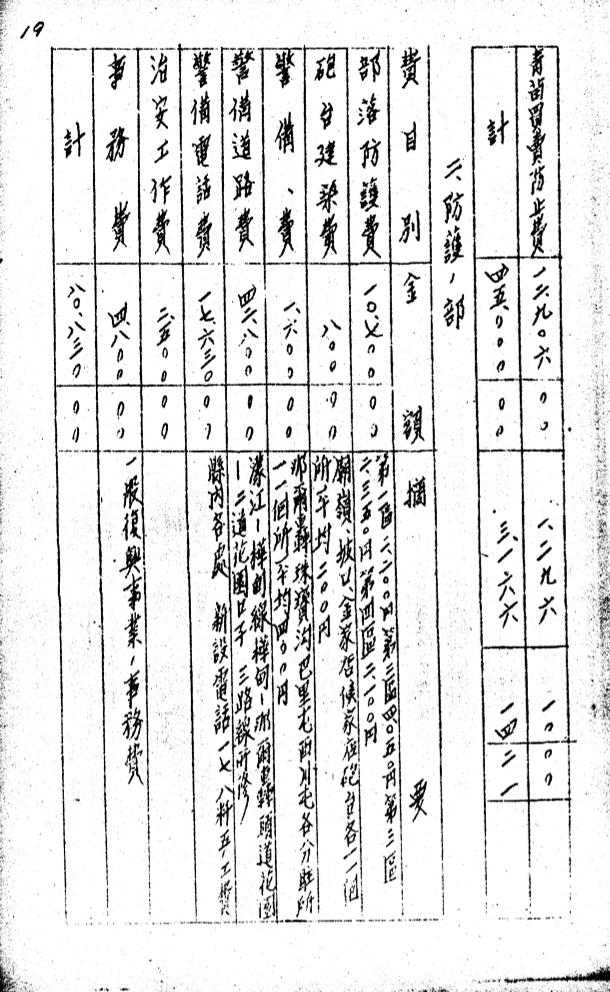 19
青苗買賣防止費 一二、九〇六 〇〇 一、二九六 一〇〇〇
計 四五、〇〇〇 〇〇 三、一六六 一四二一
二、防護ノ部
費目別 金額 摘要
部落防護費 一〇、七〇〇 〇〇 第一區二、二〇〇円 第二區四、〇五〇円 第三區
二、三五〇円 第四區二、一〇〇円
砲台建築費 八〇〇 〇〇 廟嶺、坡口、金家店、侯家店砲台各一個
所 平均二〇〇円
警備、費 一、六〇〇 〇〇 那爾轟、珠寶溝、巴里屯、西川屯各分駐所
一個所 平均四〇〇円
警備道路費 四二、八〇〇 〇〇 濛江―樺甸線 樺甸―那爾轟線 頭道花園
―二道花園口子 三路線所修
警備電話費 一七、六三〇 〇〇 縣內各處 新設電話 一七、八料 工費
治安工作費 二、五〇〇 〇〇
事務費 四、八〇〇 〇〇 一般復興事業ノ事務費
計 八〇、八三〇 〇〇